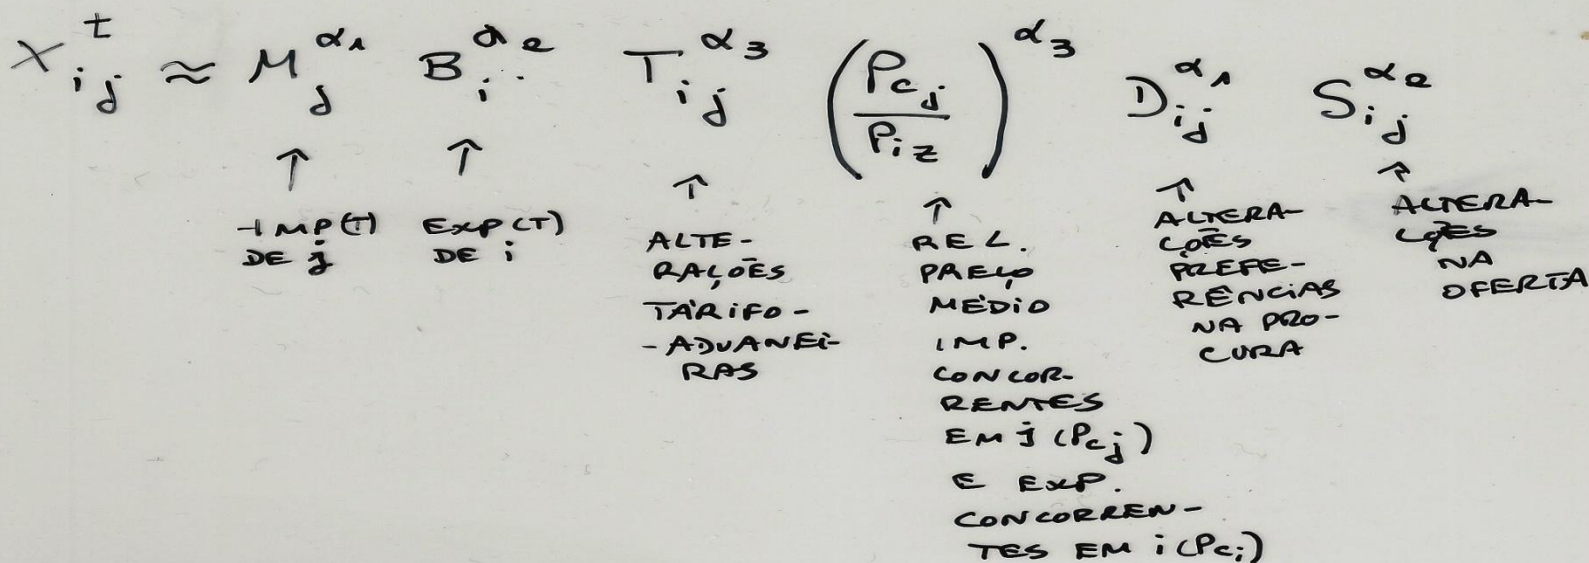 X_{ij}^t ≈ M_j^{α1} B_i^{α2} T_{ij}^{α3} (P_{cj}/P_{iz})^{α3} D_{ij}^{α1} S_{ij}^{α2}
↑ ↑ ↑ ↑ ↑ ↑
IMP(T)
DE j
EXP(T)
DE i
ALTE-
RAÇÕES
TARIFO-
-ADUANEI-
RAS
REL.
PREÇO
MÉDIO
IMP.
CONCOR-
RENTES
EM j (P_{cj})
E EXP.
CONCORREN-
TES EM i (P_{ci})
ALTERA-
ÇÕES
PREFE-
RÊNCIAS
NA PRO-
CURA
ALTERA-
ÇÕES
NA
OFERTA